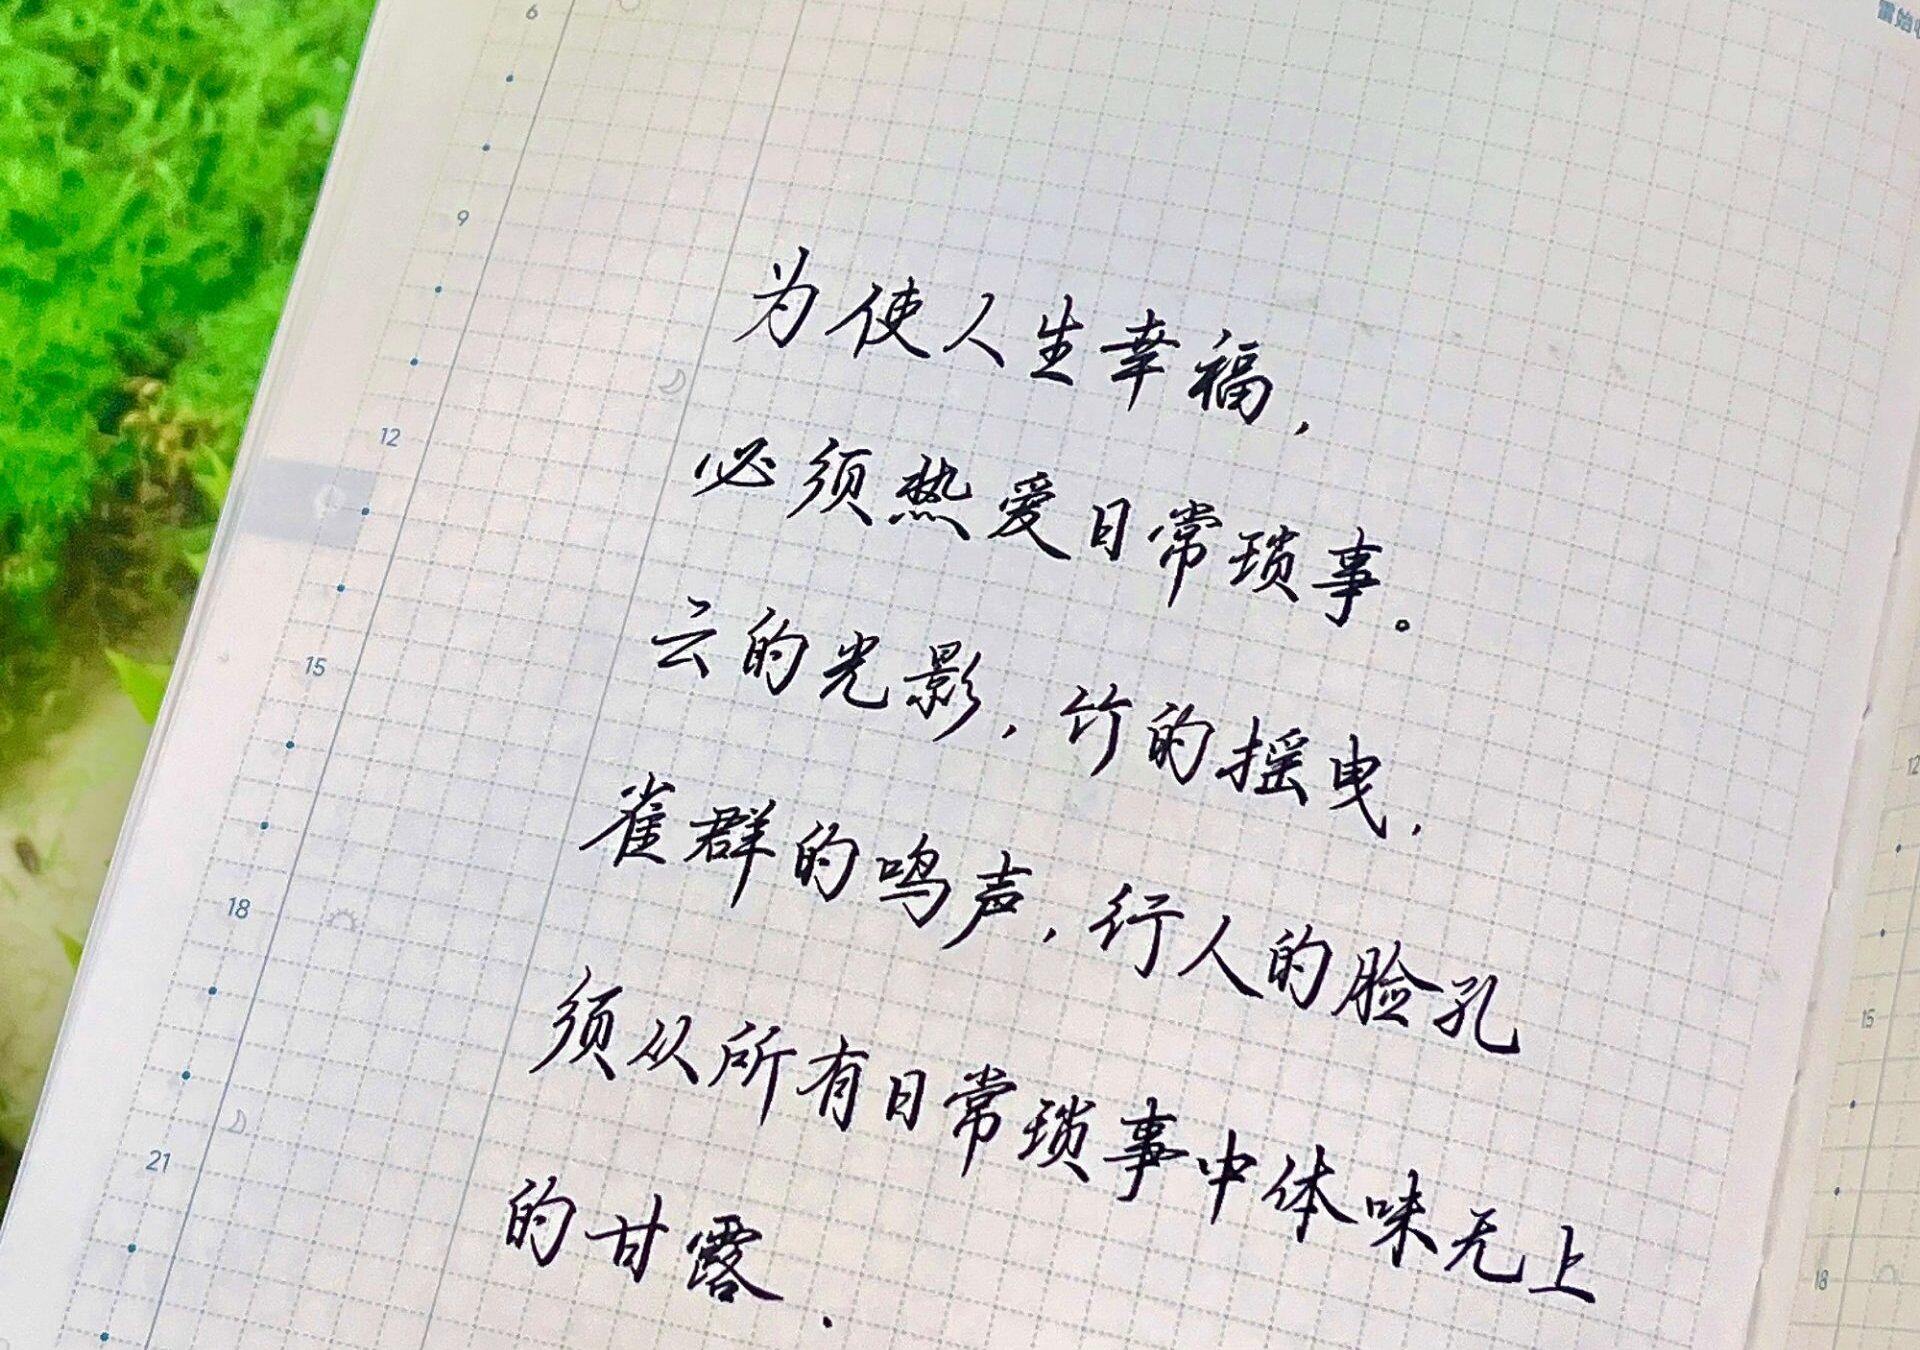 为使人生幸福，
必须热爱日常琐事。
云的光影，竹的摇曳，
雀群的鸣声，行人的脸孔
须从所有日常琐事中体味无上
的甘露．
6
9
12
15
18
21
12
15
18